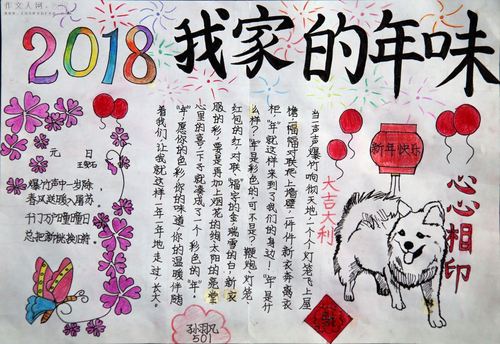 作文人网
2018我家的年味
元 日
王安石
爆竹声中一岁除
春风送暖入屠苏
千门万户曈曈日
总把新桃换旧符.
当一声声爆竹响彻天地,一个个灯笼飞上屋
檐,一幅幅对联爬上墙壁,一件件新衣奔离衣
柜,“年”就这样来到了我们的身边!“年”是什
么样?“年”是彩色的,可不是?鞭炮、灯笼、
红包的红,对联、“福”字的金,瑞雪的白,新衣
服的彩,要是再加上烟花的绚,太阳的亮,堂
心里的喜,一下子就凑成了一个彩色的“年”。
“年”,愿你的色彩、你的味道、你的温暖伴随
着我们,让我就这样一年一年地走过,长大。
新年快乐
大吉大利
心心相印
福
孙羽凡
501